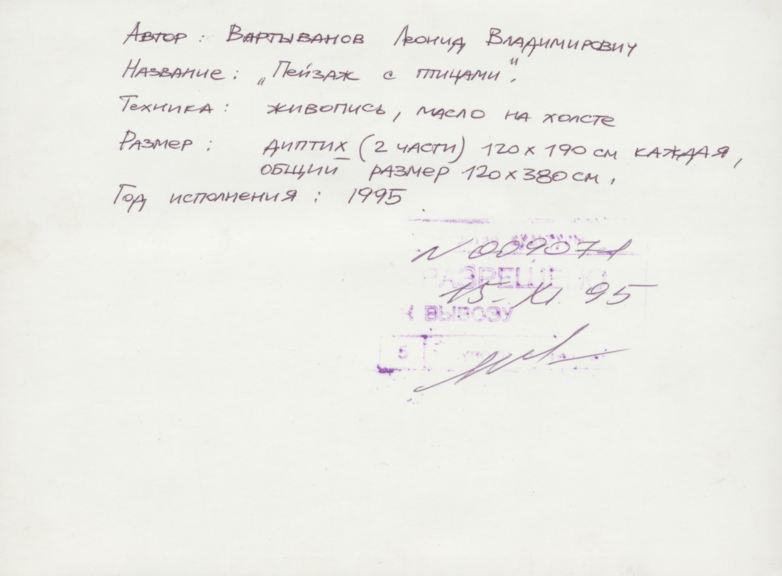 Автор : Вартыванов Леонид Владимирович
Название : „Пейзаж с птицами".
Техника : живопись, масло на холсте
Размер : диптих (2 части) 120 х 190 см каждая,
общий размер 120 х 380 см.
Год исполнения : 1995
N 009071
РАЗРЕШЕНО
15. XI. 95
К ВЫВОЗУ
5